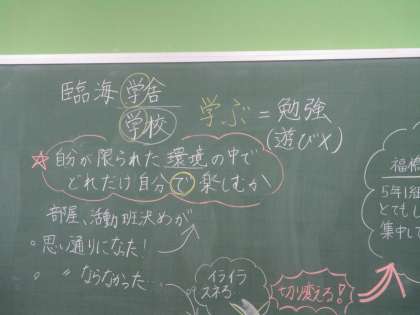 臨海学舎
学校
学ぶ＝勉強
(遊び×)
☆自分が限られた環境の中で
どれだけ自分で楽しむか
部屋、活動班決めが
。思い通りになった！
。〃ならなかった…
イライラ
スネる
切り変える！
5年1組
とても
集中して